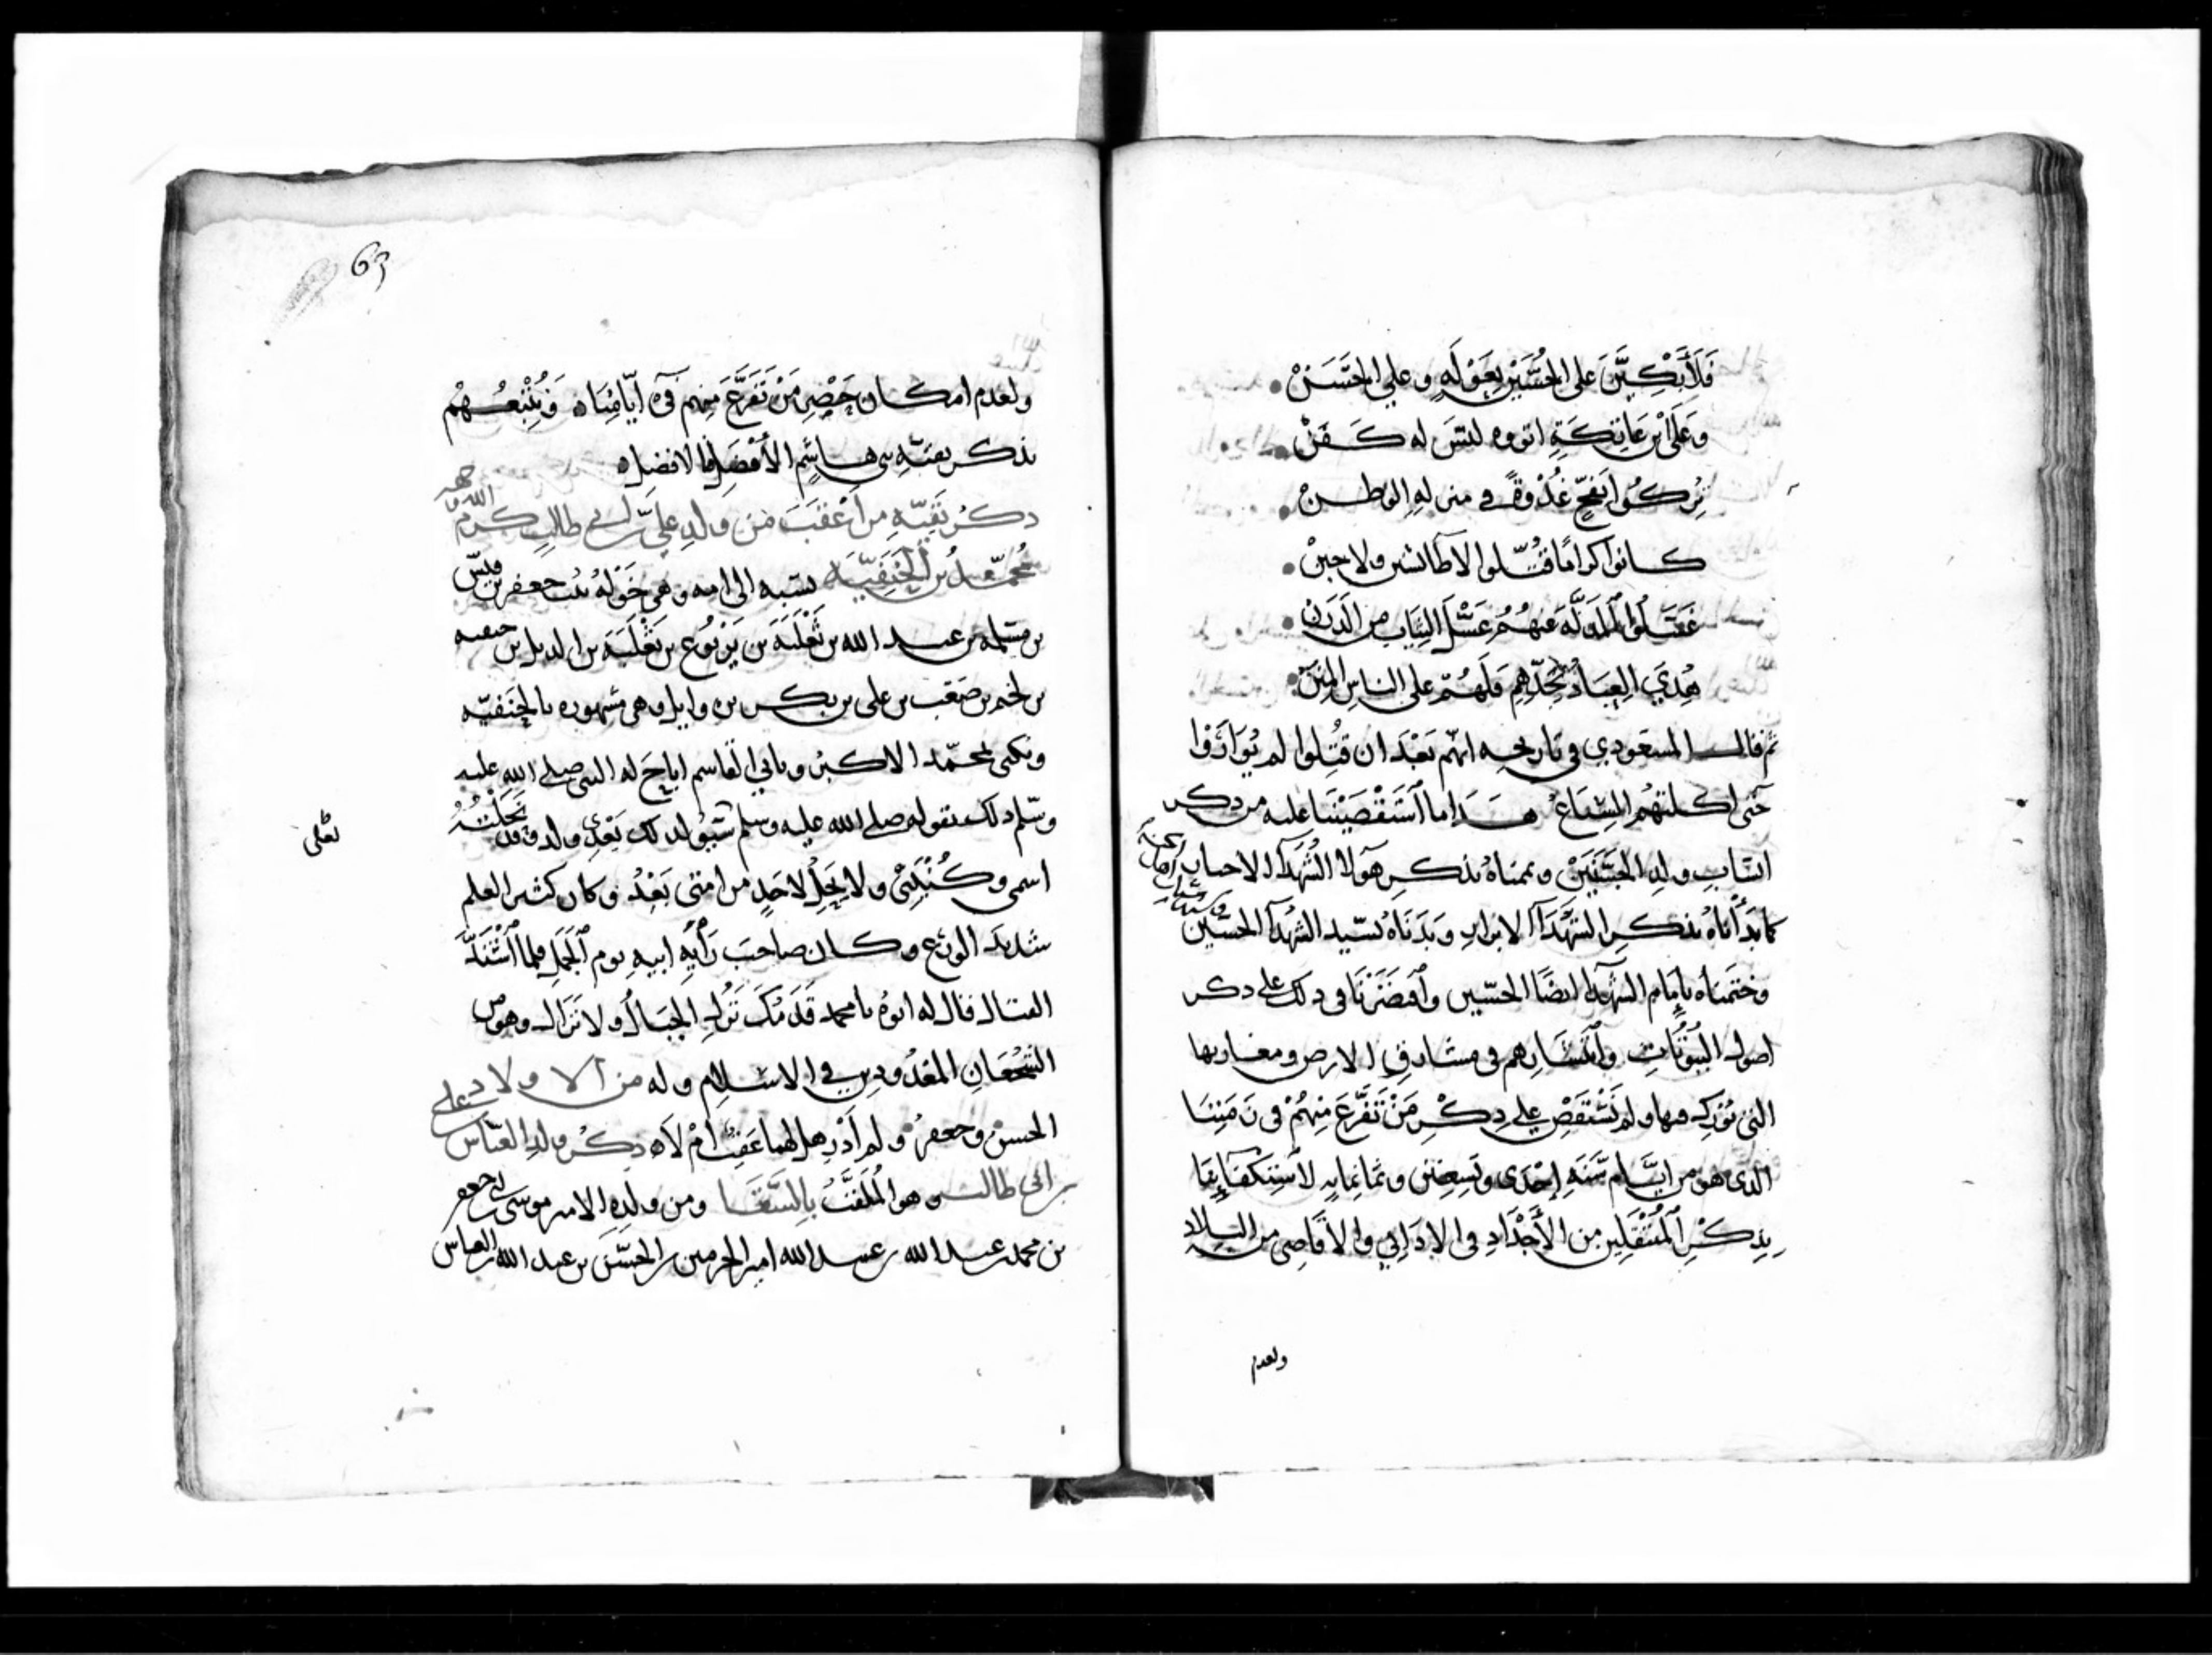 فَلَأَبْكِيَنَّ على الحُسَيْنِ بِعَوْلَهٍ وعلي الحَسَنْ
وَعَلَى ابْنِ عَاتِكَةِ اثووه ليسَ له كَفَنْ
تُرِكُوا بِفَخٍّ غُدْوَةً في منزلهِ الوطنْ
كانوا كرامًا قُتِّلوا لا طائشين ولا جبنْ
غسَلُوا المَذلَّةَ عنهُمُ غَسْلَ الثِيَابِ مِن الدَرَنْ
هُدِيَ العِبَادُ بِجَدِّهِم فَلَهُم على الناسِ المِنَنْ
ثم قال المسعودي في تاريخه انهم بَعْدَ ان قُتِلوا لم يُوَارَوْا
حتى اكلتهُم السِّبَاعُ هذا ما اَسْتَقْصَيْنَا عليه من ذكر
انسَابِ ولدِ الحَسَنَيْنِ وتممناهُ بذكرِ هَولا الشُهَدَآ الاحيا
كما بَدَأْنَاهُ بذكرِ الشُهَدَآ الابرارِ وَبَدَنَاهُ بسَيد الشُهدآ الحسَين
وختمناه بإمَام الشُهدآ ايضًا الحسَين واقتصَرْنَا في ذلك على ذكر
اصول البُيُوتَاتِ وانتشارهم في مشارقِ الارض ومغاربها
التي نورك فيها ولم نَسْتَقصِ على ذِكْرِ مَنْ تَفَرَّعَ مِنهُمْ في زَمَنِنَا
الذي هو من ايَّام سَنَةِ اِحْدَى وتسعين وثمانمايه لاستكفآئِنَا
بِذِكْرِ المُنْتَقِلِين مِن الأَجْدَادِ في الادَانِي والاقَاصِي من البلادِ
ولعدم
63
ولعدم امكان حَصْرِ مَنْ تَفَرَّعَ مِنهم في ايّامِنَا وَنُتْبِعُهُمْ
بذكر بقيّةِ بني هاشمِ الأفضَل فالافضل
ذكرُ بَقيّهِ من اَعْقَبَ مَن ولدِ علي بن ابي طالبٍ كرم الله وجهه
مُحمّدُ بن الحَنَفِيَّه نسَبه الى امه وهي خَوْلَهُ بنت جعفر بن قيس
بن مسلمه بن عبد الله بن ثَعْلَبَةَ بن يَرْبُوع بن ثَعْلَبَة بن الديل بن حنيفه
بن لخم بن صَعب بن علي بن بكر بن وايل وهي مشهوره بالحَنَفيّه
ويكنى بمحمّد الاكبر وبابي القاسم اباحَ له النبي صلى الله عليه
وسّلم ذلك بقوله صلى الله عليه وسلم سَيُولد لك بَعْدِي ولد وقد نَحَلْتُهُ
لعلي
اسمي وكُنْيَتِي ولا يَحِلُّ لاحَدٍ من امتي بَعْدهُ وكان كثير العلم
شديدَ الورَع وكان صاحبَ رَأيهِ ابيهِ يوم الجَمل فلما اَشْتَدَّ
القتال قال له ابوهُ يا محمد قَدَمُكَ تزُل الجبَالُ ولا تزال وهو من
الشُجْعَانِ المَعْدُودين في الاسلامِ وله من الاولاد علي
الحسن وجعفرُ ولم اَدْرِ هل لهما عَقِبٌ امْ لَا ذكْرُ ولدِ العبّاس
بن ابي طالب وهو المُلَقَّبُ بالسَّقَّا ومن ولدِهِ الامير موسى بن جعفر
بن محمد بن عبد الله بن عبيد الله امير الحرمين بن الحسَن بن عبد الله بن العباس